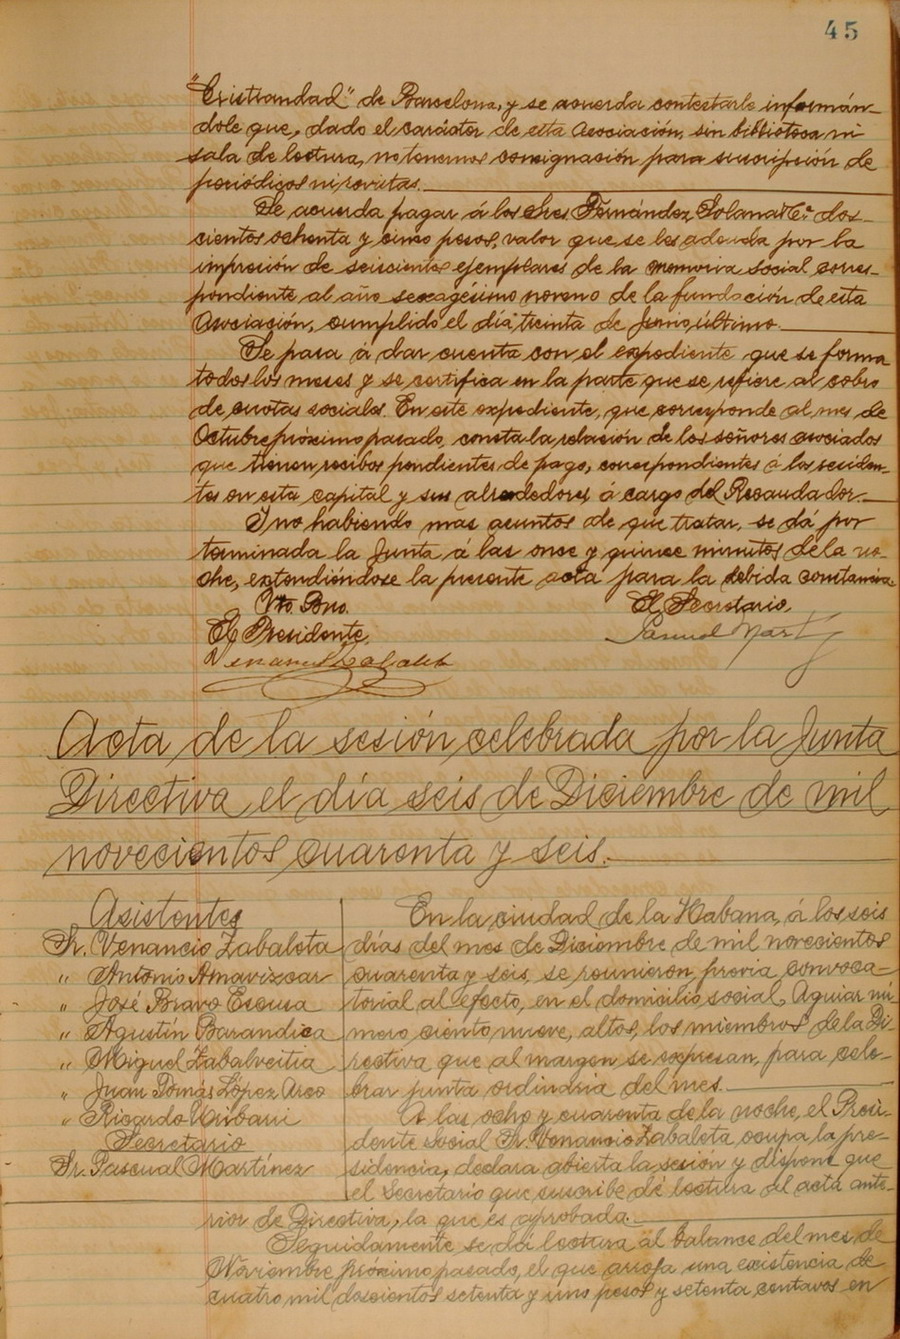 45
"Cristiandad" de Barcelona, y se acuerda contestarle informán-
dole que, dado el carácter de esta Asociación, sin biblioteca ni
sala de lectura, no tenemos consignación para suscripción de
periódicos ni revistas.
Se acuerda pagar á los Sres Fernández Solana y Cª. dos-
cientos ochenta y cinco pesos, valor que se les adeuda por la
impresión de seiscientos ejemplares de la memoria social corres-
pondiente al año sexagésimo noveno de la fundación de esta
Asociación, cumplido el día treinta de Junio último.
Se pasa á dar cuenta con el expediente que se forma
todos los meses y se certifica en la parte que se refiere al cobro
de cuotas sociales. En este expediente, que corresponde al mes de
Octubre próximo pasado, consta la relación de los señores asociados
que tienen recibos pendientes de pago, correspondientes á los residen-
tes en esta capital y sus alrededores, á cargo del Recaudador.
Y no habiendo mas asuntos de que tratar, se dá por
terminada la Junta á las once y quince minutos de la no-
che, extendiéndose la presente acta para la debida constancia.
Vto. Bno. El Secretario,
El Presidente,
Acta de la sesión celebrada por la Junta
Directiva el día seis de Diciembre de mil
novecientos cuarenta y seis.
Asistentes
Sr. Venancio Zabaleta
" Antonio Arnavizcar
" José Bravo Escusa
" Agustín Barandica
" Miguel Zabalveitia
" Juan Tomás López Arco
" Ricardo Uribarri
Secretario
Sr. Pascual Martínez
En la ciudad de la Habana, á los seis
días del mes de Diciembre de mil novecientos
cuarenta y seis, se reunieron, previa convoca-
toria al efecto, en el domicilio social, Aguiar nú-
mero ciento nueve, altos, los miembros de la Di-
rectiva que al margen se expresan, para cele-
brar junta ordinaria del mes.
A las ocho y cuarenta de la noche, el Presi-
dente social Sr. Venancio Zabaleta ocupa la pre-
sidencia, declara abierta la sesión y dispone que
el Secretario que suscribe dé lectura al acta ante-
rior de Directiva, la que es aprobada.
Seguidamente se dá lectura al balance del mes de
Noviembre próximo pasado, el que arroja una existencia de
cuatro mil doscientos setenta y uno pesos y setenta centavos en